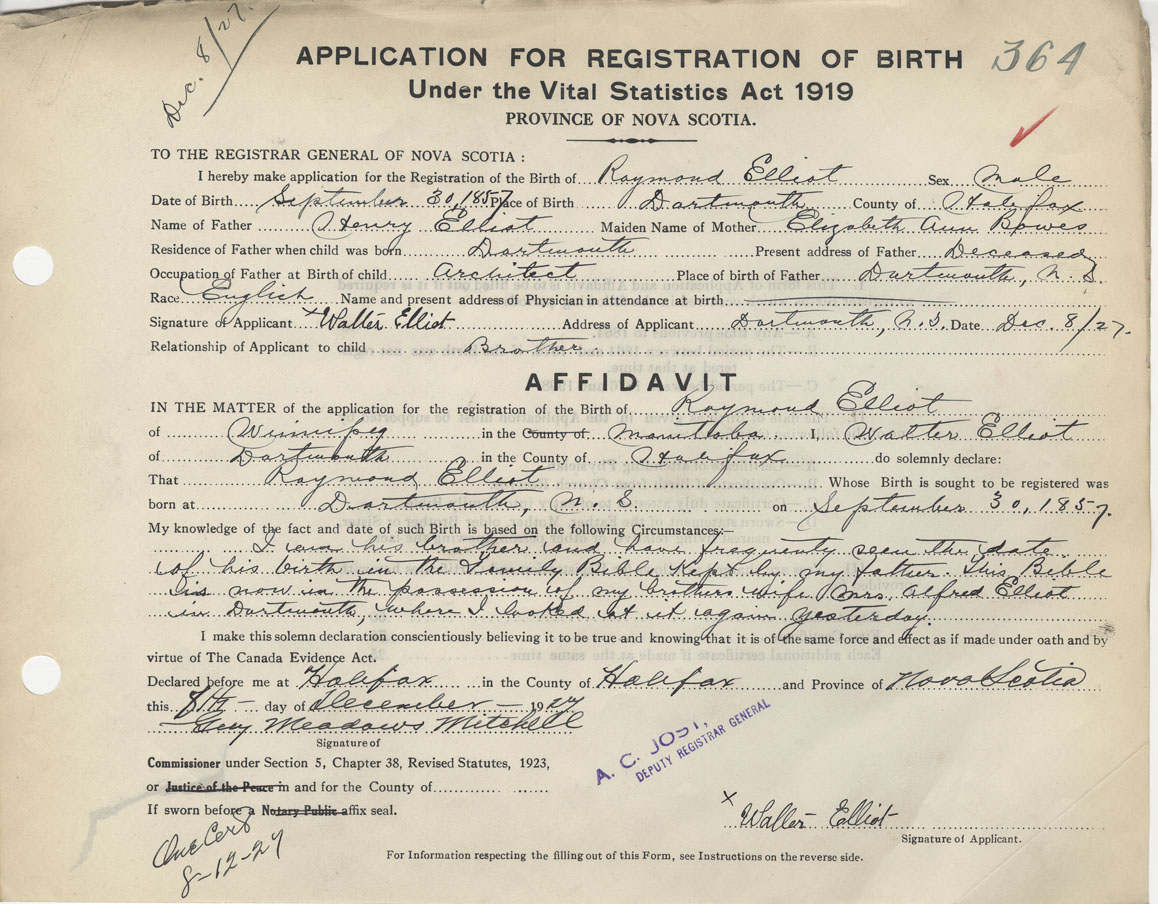 Dec. 8/27.
APPLICATION FOR REGISTRATION OF BIRTH 364
Under the Vital Statistics Act 1919
PROVINCE OF NOVA SCOTIA.
TO THE REGISTRAR GENERAL OF NOVA SCOTIA :
I hereby make application for the Registration of the Birth of Raymond Elliot Sex Male
Date of Birth September 30, 1857 Place of Birth Dartmouth County of Halifax
Name of Father Henry Elliot Maiden Name of Mother Elizabeth Ann Bowes
Residence of Father when child was born Dartmouth Present address of Father Deceased
Occupation of Father at Birth of child Architect Place of birth of Father Dartmouth, N. S.
Race English Name and present address of Physician in attendance at birth
Signature of Applicant x Walter Elliot Address of Applicant Dartmouth, N.S. Date Dec. 8/27.
Relationship of Applicant to child Brother.
AFFIDAVIT
IN THE MATTER of the application for the registration of the Birth of Raymond Elliot
of Winnipeg in the County of Manitoba I, Walter Elliot
of Dartmouth in the County of Halifax do solemnly declare:
That Raymond Elliot Whose Birth is sought to be registered was
born at Dartmouth, N. S. on September 30, 1857.
My knowledge of the fact and date of such Birth is based on the following Circumstances:—
I am his brother and have frequently seen the date
of his birth in the Family Bible kept by my father. This Bible
is now in the possession of my brothers wife Mrs. Alfred Elliot
in Dartmouth, where I looked at it again yesterday.
I make this solemn declaration conscientiously believing it to be true and knowing that it is of the same force and effect as if made under oath and by
virtue of The Canada Evidence Act.
Declared before me at Halifax in the County of Halifax and Province of Nova Scotia
this 8th day of December 1927
Guy Meadows Mitchell
Signature of
A. C. JOST,
DEPUTY REGISTRAR GENERAL
Commissioner under Section 5, Chapter 38, Revised Statutes, 1923,
or Justice of the Peace in and for the County of
If sworn before a Notary Public affix seal.
x Walter Elliot
Signature of Applicant.
One Cert
8-12-27
For Information respecting the filling out of this Form, see Instructions on the reverse side.